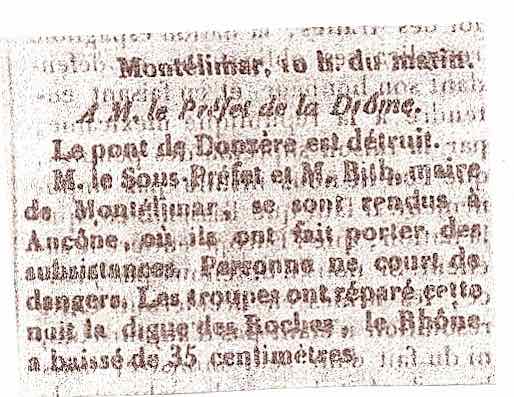 Montélimar, 10 h. du matin.
A M. le Préfet de la Drôme.
Le pont de Donzère est détruit.
M. le Sous-Préfet et M. Bith, maire
de Montélimar, se sont rendus à
Ancône, où ils ont fait porter des
subsistances. Personne ne court de
dangers. Les troupes ont réparé cette
nuit la digue des Roches, le Rhône
a baissé de 35 centimètres